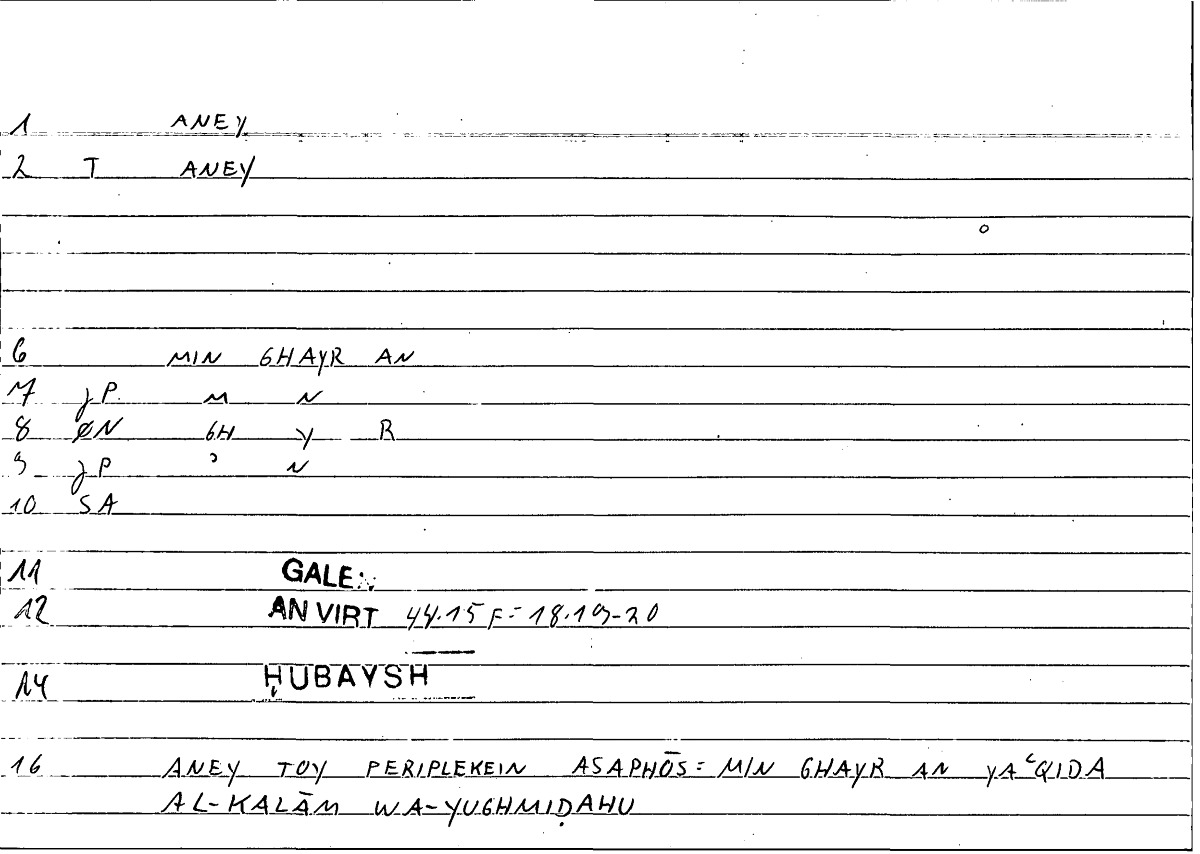 1 ANEY
2 T ANEY
6 MIN GHAYR AN
7 JP. M N
8 ØN GH Y R
9 JP ʾ N
10 SA
11 GALEN
12 AN VIRT 44.15 F = 18.19-20
14 ḤUBAYSH
16 ANEY TOY PERIPLEKEIN ASAPHŌS = MIN GHAYR AN YAʿQIDA
AL-KALĀM WA-YUGHMIḌAHU